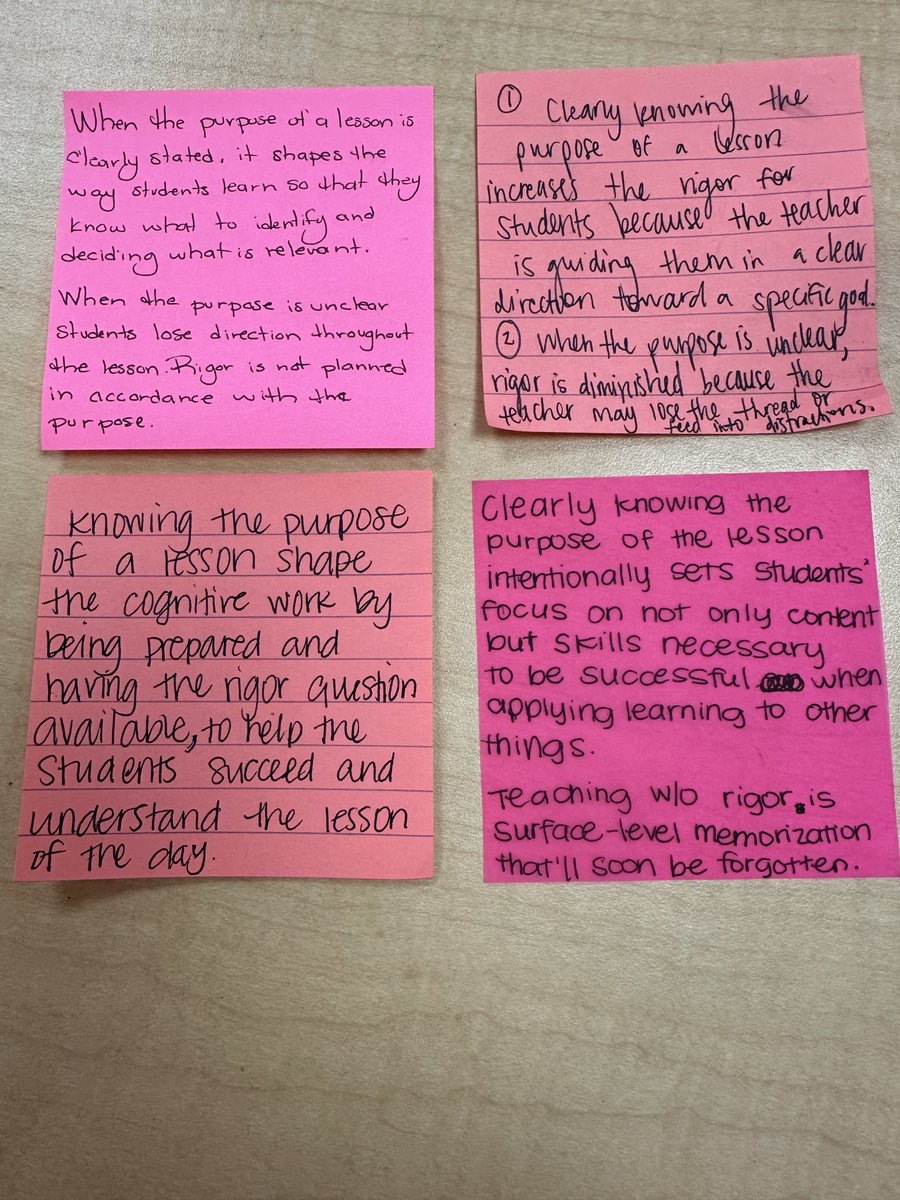 When the purpose of a lesson is
clearly stated, it shapes the
way students learn so that they
know what to identify and
deciding what is relevant.
When the purpose is unclear
students lose direction throughout
the lesson. Rigor is not planned
in accordance with the
purpose.
① Clearly knowing the
purpose of a lesson
increases the rigor for
students because the teacher
is guiding them in a clear
direction toward a specific goal.
② When the purpose is unclear,
rigor is diminished because the
teacher may lose the thread or
feed into distractions.
Knowing the purpose
of a lesson shape
the cognitive work by
being prepared and
having the rigor question
available, to help the
students succeed and
understand the lesson
of the day.
Clearly knowing the
purpose of the lesson
intentionally sets students'
focus on not only content
but skills necessary
to be successful when
applying learning to other
things.
Teaching w/o rigor is
surface-level memorization
that'll soon be forgotten.